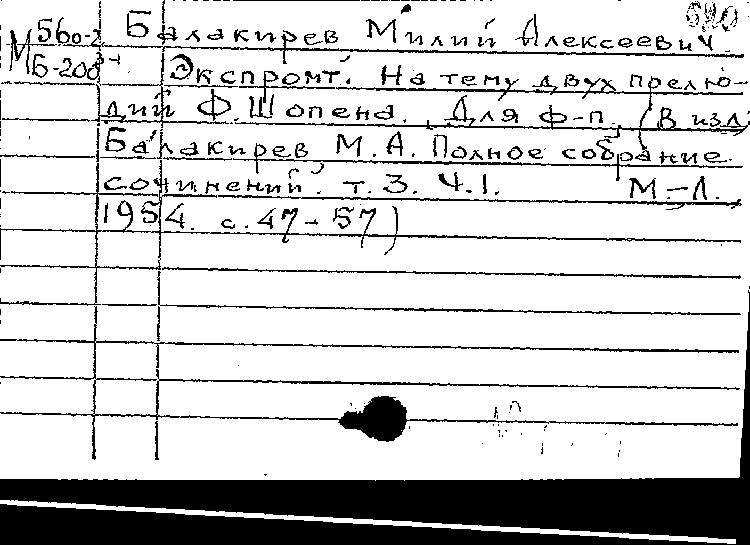 М 560-2 Балакирев Милий Алексеевич.
Б-200 Экспромт. На тему двух прелю-
дий Ф. Шопена. Для ф-п. (В изд.
Балакирев М.А. Полное собрание
сочинений. т.3. Ч.1. М.-Л.
1954. с.47-57)